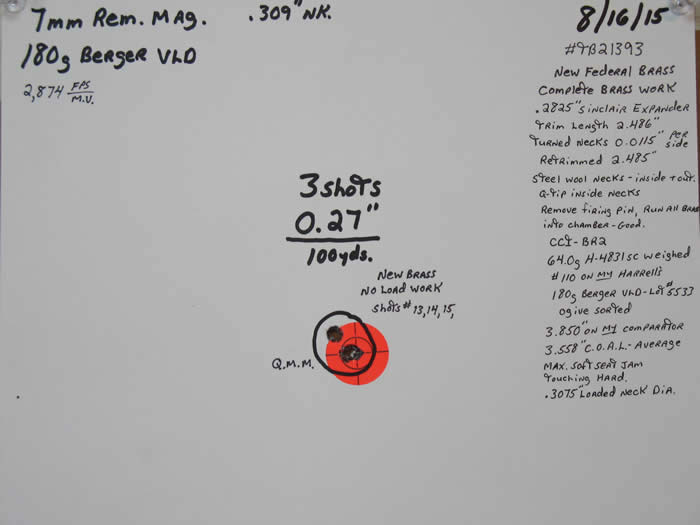 7mm Rem. Mag. .309" NK.
180g Berger VLD
2,874 FPS/M.V.
8/16/15
#TB21393
New Federal Brass
Complete Brass Work
.2825" Sinclair Expander
Trim Length 2.486"
Turned Necks 0.0115" per side
Retrimmed 2.485"
Steel Wool Necks - inside + out.
Q-tip inside Necks
Remove firing pin, Run All Brass
into chamber - Good.
CCI-BR2
64.0g H-4831sc weighed
#110 on my Harrell's
180g Berger VLD - Lot #5533
ogive sorted
3.850" on my comparator
3.558" C.O.A.L. - Average
Max. soft seat Jam
Touching Hard.
.3075" Loaded Neck Dia.
3 shots
0.27"
100yds.
New Brass
No Load Work
shots # 13,14,15,
Q.M.M.